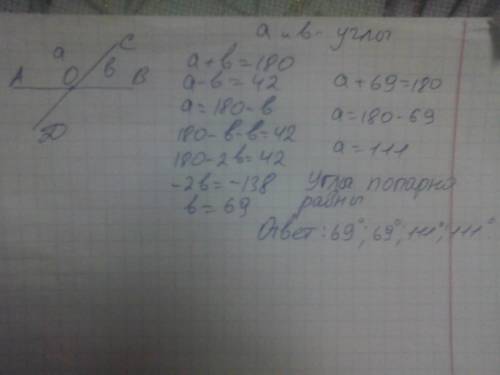 а и в - углы
а
С
А
О
в
В
D
а+в=180
а-в=42
а=180-в
180-в-в=42
180-2в=42
-2в=-138
в=69
а+69=180
а=180-69
а=111
Углы попарно
равны
Ответ: 69°; 69°; 111°; 111°